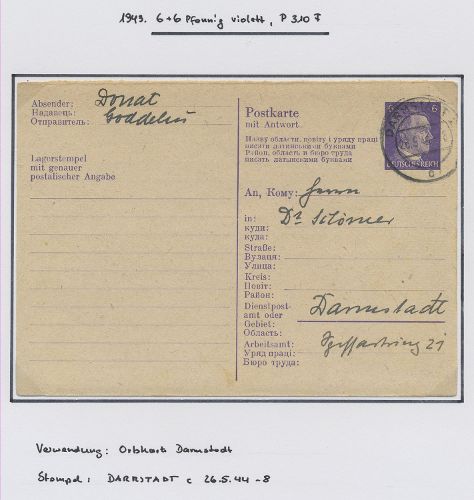 1943. 6+6 Pfennig violett, P 310 F
Absender: Donat
Надавець: Goddelau
Отправитель:
Lagerstempel
mit genauer
postalischer Angabe
Postkarte
mit Antwort.
Назву области, повіту і уряду праці
писати латинськими буквами
Район, область и бюро труда
писать латинскими буквами
6
DEUTSCHES REICH
An, Кому: Herrn
in: Dr
куди:
куда:
Straße:
Вулаця:
Улица:
Kreis:
Повіт:
Район:
Dienstpost-
amt oder Darmstadt
Gebiet:
Область:
Arbeitsamt: 21
Уряд праці:
Бюро труда:
Verwendung: Ortskart Darmstadt
Stempel: DARMSTADT c 26.5.44 -8